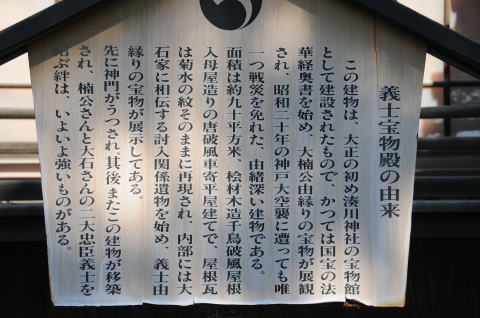 義士宝物殿の由来
この建物は、大正の初め湊川神社の宝物館
として建設されたもので、かつては国宝の法
華経奥書を始め、大楠公由縁りの宝物が展観
され、昭和二十年の神戸大空襲に遭っても唯
一つ戦災を免れた、由緒深い建物である。
面積は約九十平方米、桧材木造千鳥破風屋根
入母屋造りの唐破風車寄平屋建てで、屋根瓦
は菊水の紋そのままに再現され、内部には大
石家に相伝する討入関係遺物を始め、義士由
縁りの宝物が展示してある。
先に神門がうつされ、其後またこの建物が移築
され、楠公さんと大石さんの二大忠臣義士を
結ぶ絆は、いよいよ強いものがある。